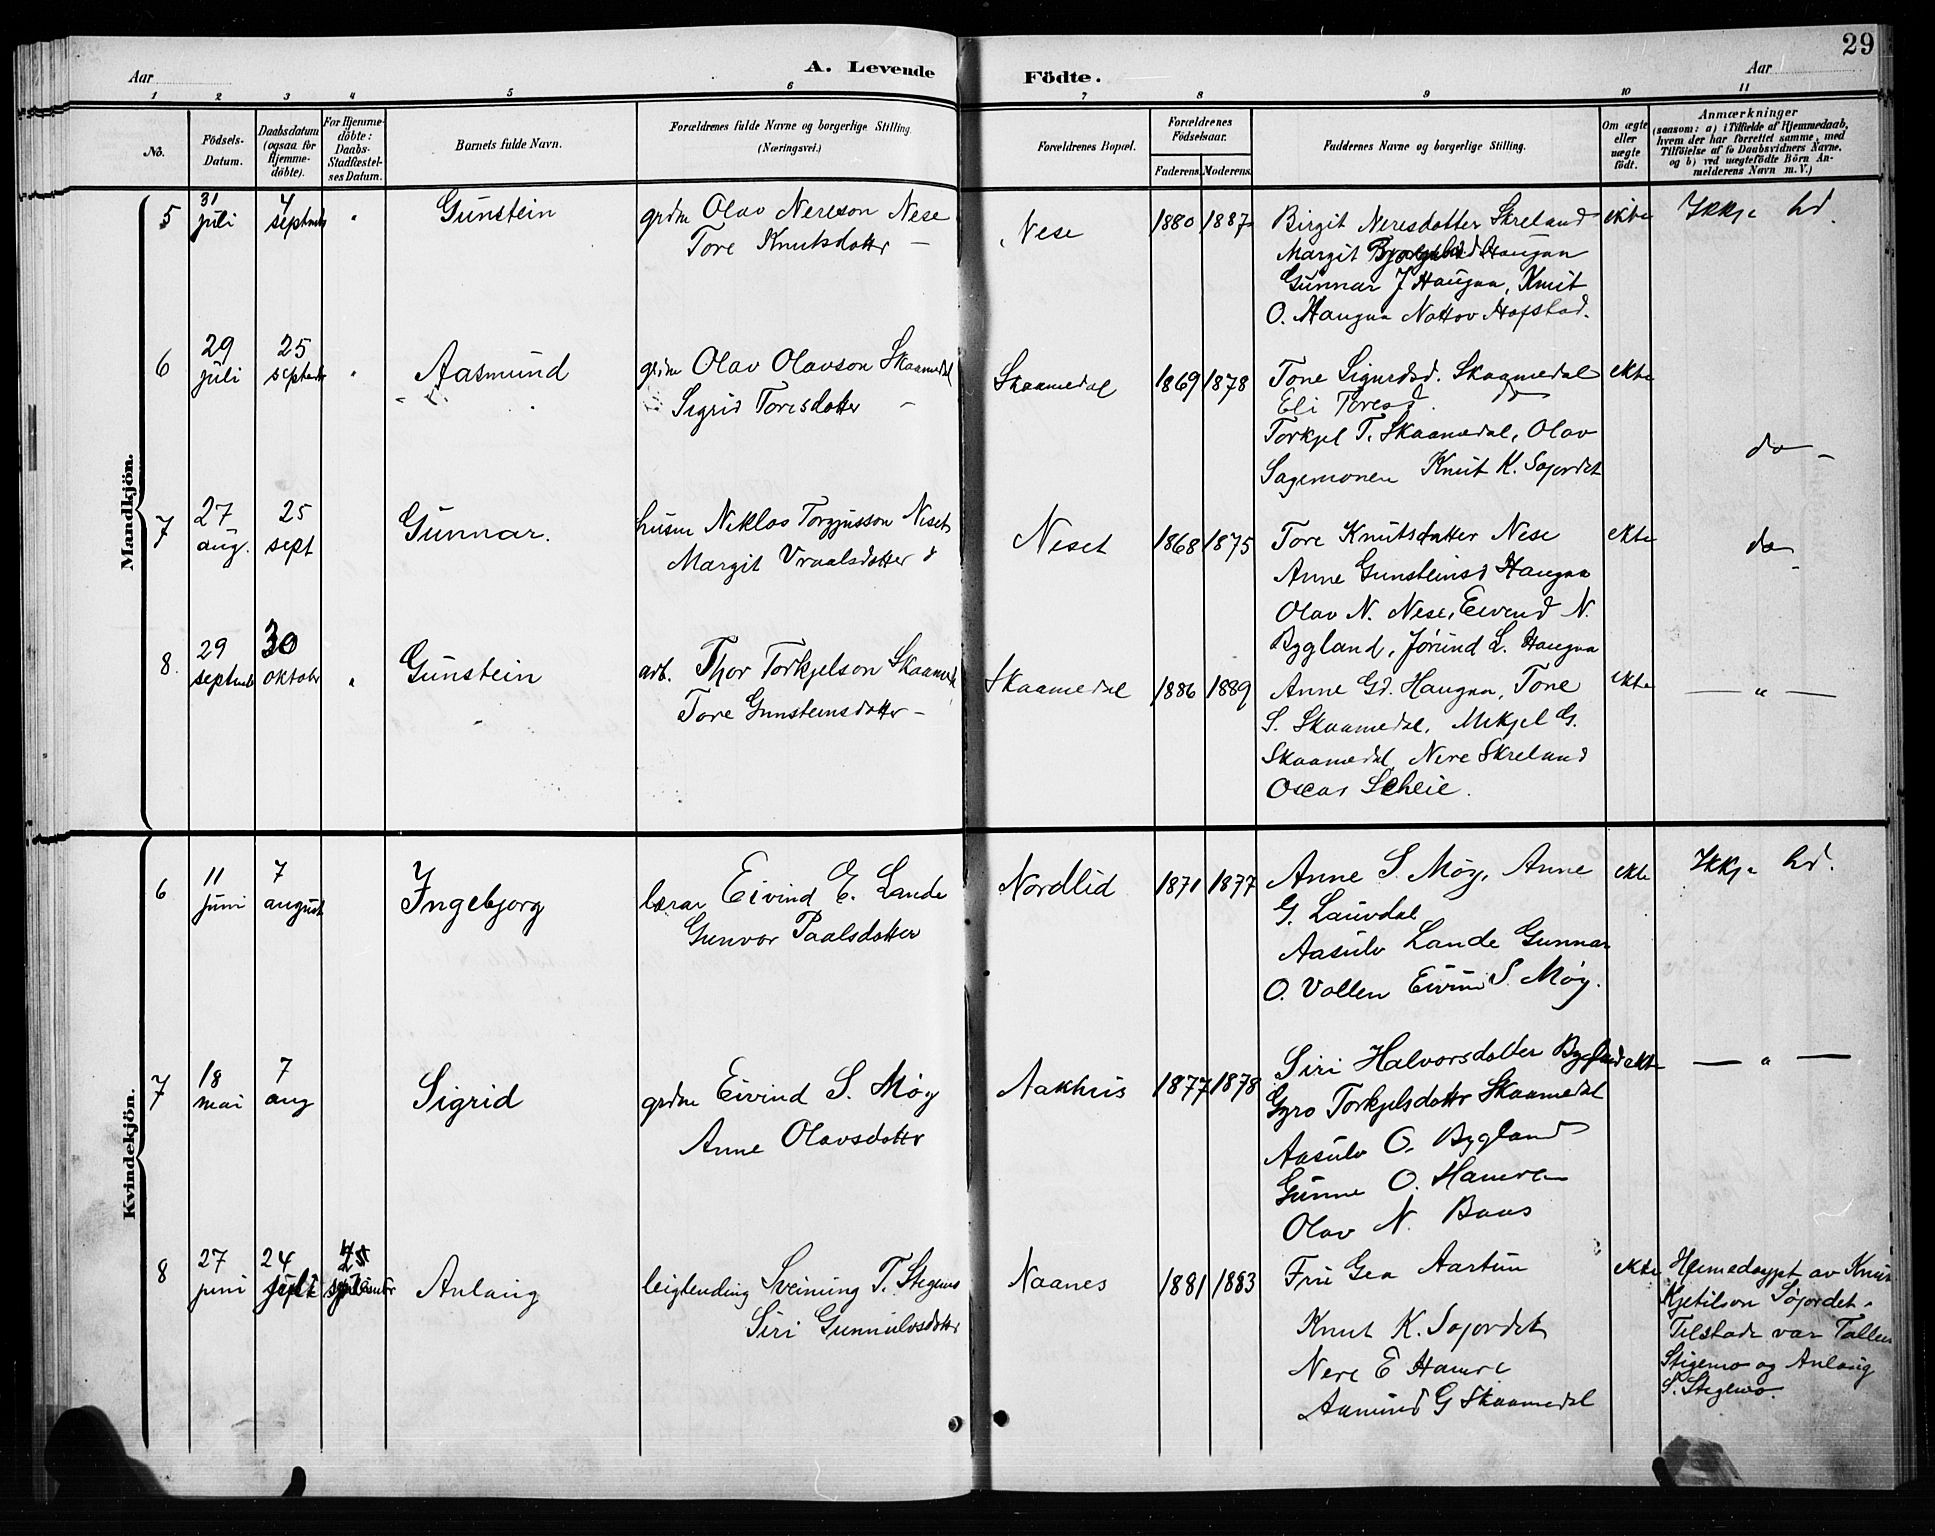 29
Aar
A. Levende
Födte.
Aar
1 2 3 4 5 6 7 8 9 10 11
No.
Födsels-
Datum.
Daabsdatum
(ogsaa for
Hjemme-
döbte).
For Hjemme-
döbte:
Daabs-
Stadfæstel-
ses Datum.
Barnets fulde Navn.
Forældrenes fulde Navne og borgerlige Stilling.
(Næringsvei.)
Forældrenes Bopæl.
Forældrenes
Födselsaar.
Faderens. Moderens.
Faddernes Navne og borgerlige Stilling.
Om ægte
eller
uægte
födt.
Anmærkninger
(saasom: a) i Tilfælde af Hjemmedaab,
hvem der har forrettet samme, med
Tilföielse af to Daabsvidners Navne,
og b) ved uægtefödte Börn An-
melderens Navn m. V.)
Mandkjön.
5
31
juli
4
septmb
"
Gunstein
grdm Olav Nereson Nese
Tore Knutsdottr —
Nese
1880
1887
Birgit Neresdotter Skreland
Margit Haugaa
Gunnar J Haugaa, Knut
O. Haugaa Nottov Hofstad.
ekte
Ikkje hd.
6
29
juli
25
septmbr
"
Aasmund
grdm Olav Olavson Skaamedal
Sigrid Toresdotter —
Skaamedal
1869
1878
Tone Sigurdsd. Skaamedal
Eli Toresd.
Torkjel T. Skaamedal, Olav
Sagemonen Knut K. Sojordet
ekte
do —
7
27
aug.
25
sept
Gunnar.
husm Niklos Torgjusson Neset
Margit Vraalsdotter d
Neset
1868
1875
Tore Knutsdatter Nese
Anne Gunsteinsd Haugaa
Olav N. Nese, Eivend N.
Bygland, Jørund L. Haugaa
ekte
do
8.
29
septmb
30
oktobr
"
Gunstein
arb. Thor Torkjelson Skaamed
Tore Gunsteinsdottr —
Skaamedal
1886
1889
Anne Gd. Haugaa, Tone
S. Skaamedal, Mikjel G.
Skaamedal, Nere Skreland
Oscar Scheie.
ekte
— " —
Kvindekjön.
6
11
juni
7
august
Ingebjorg
lærar Eivind E. Lande
Gunvor Paalsdotter
Nordlid
1871
1877
Anne S. Møy, Anne
G. Lauvdal
Aasulv Lande Gunnar
O. Vollen Eivind S. Møy.
ekte
Ikkje hd.
7
18
mai
7
aug
Sigrid
grdm Eivind S. Møy
Anne Olavsdottr
Aakhus
1877
1878
Siri Halvorsdotter Bygland
Gyro Torkjelsdottr Skaamedal
Aasulv O. Bygland
Gunne O. Hamre
Olav N. Baas
ekte
— " —
8
27
juni
24
25
Anlaug
leiglending Sveinung T. Stegemo
Siri Gunnulvsdottr
Naanes
1881
1883
Fru Gea Aartun
Knut K. Sojordet
Nere E Hamre
Aamund G Skaamedal
ekte
Heimedøypt av Knut
Kjetilson Søjordet.
Tilstade var Tallev
Stigemo og Anlaug
S. Stegemo.